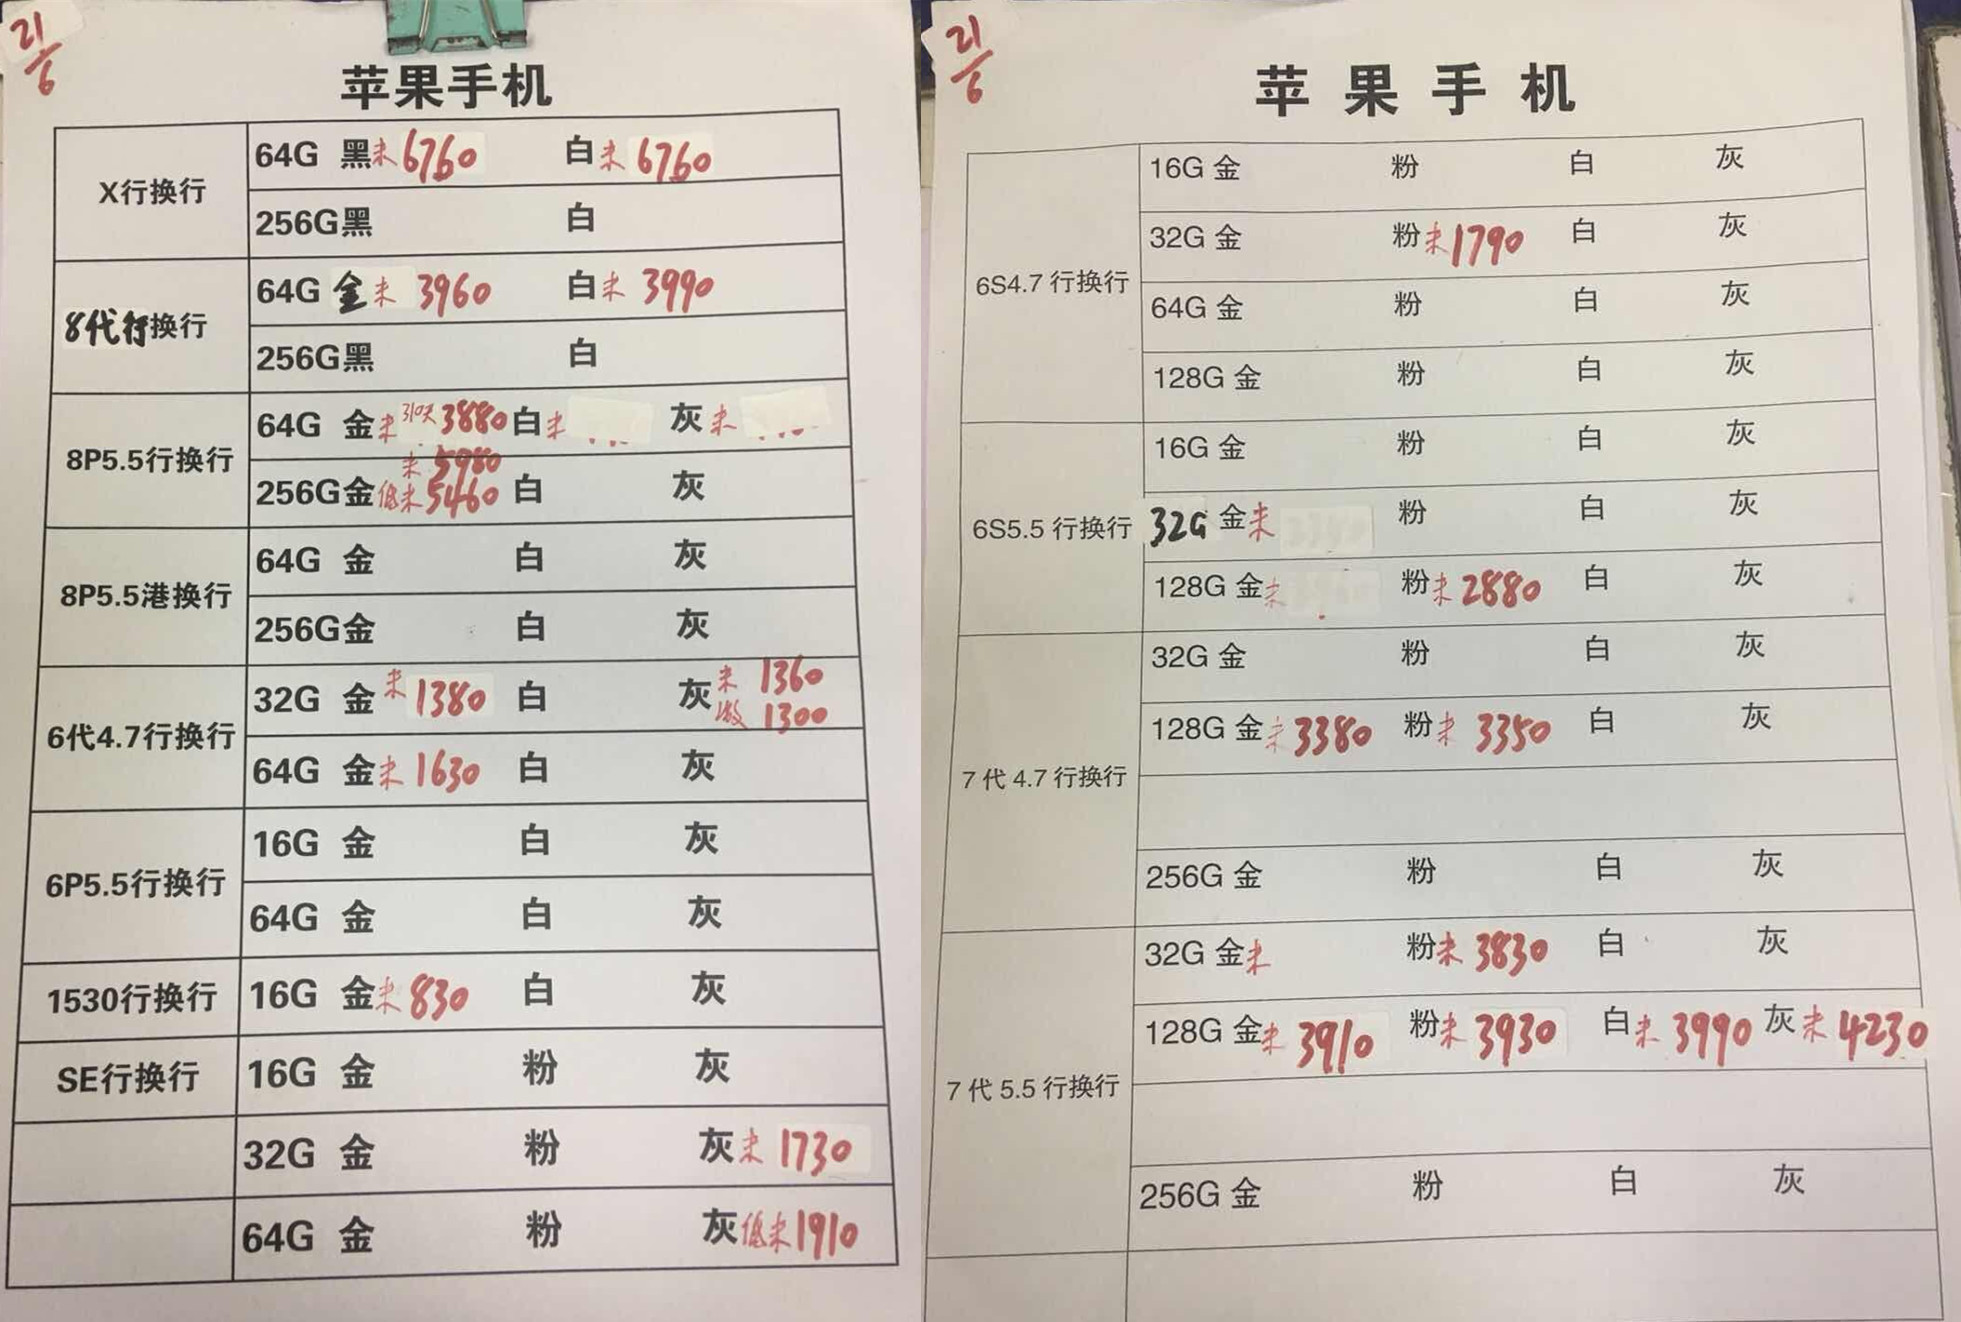 21/6
苹果手机
X行换行
64G 黑未6760 白未6760
256G黑 白
8代行换行
64G 金未3960 白未3990
256G黑 白
8P5.5行换行
64G 金未310天3880 白未 灰未
未5980
256G金低未5460 白 灰
8P5.5港换行
64G 金 白 灰
256G金 白 灰
6代4.7行换行
32G 金未1380 白 灰未1360
激1300
64G 金未1630 白 灰
6P5.5行换行
16G 金 白 灰
64G 金 白 灰
1530行换行
16G 金未830 白 灰
SE行换行
16G 金 粉 灰
32G 金 粉 灰未1730
64G 金 粉 灰低未1910
21/6
苹果手机
6S4.7行换行
16G 金 粉 白 灰
32G 金 粉未1790 白 灰
64G 金 粉 白 灰
128G 金 粉 白 灰
6S5.5行换行
16G 金 粉 白 灰
32G 金未 粉 白 灰
128G 金未 粉未2880 白 灰
7代4.7行换行
32G 金 粉 白 灰
128G 金未3380 粉未3350 白 灰
256G 金 粉 白 灰
7代5.5行换行
32G 金未 粉未3830 白 灰
128G 金未3910 粉未3930 白未3990 灰未4230
256G 金 粉 白 灰